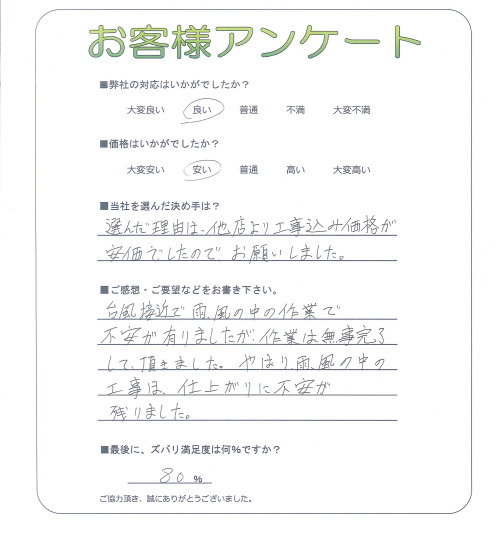 お客様アンケート
■弊社の対応はいかがでしたか？
大変良い 良い 普通 不満 大変不満
■価格はいかがでしたか？
大変安い 安い 普通 高い 大変高い
■当社を選んだ決め手は？
選んだ理由は、他店より工事込み価格が
安価でしたので お願いしました。
■ご感想・ご要望などをお書き下さい。
台風接近で雨、風の中の作業で
不安が有りましたが、作業は無事完了
して、頂きました。やはり、雨、風の中の
工事は、仕上がりに不安が
残りました。
■最後に、ズバリ満足度は何%ですか？
80 %
ご協力頂き、誠にありがとうございました。